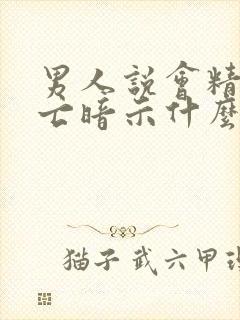 男人說會精
亡暗示什麼
猫子武六甲